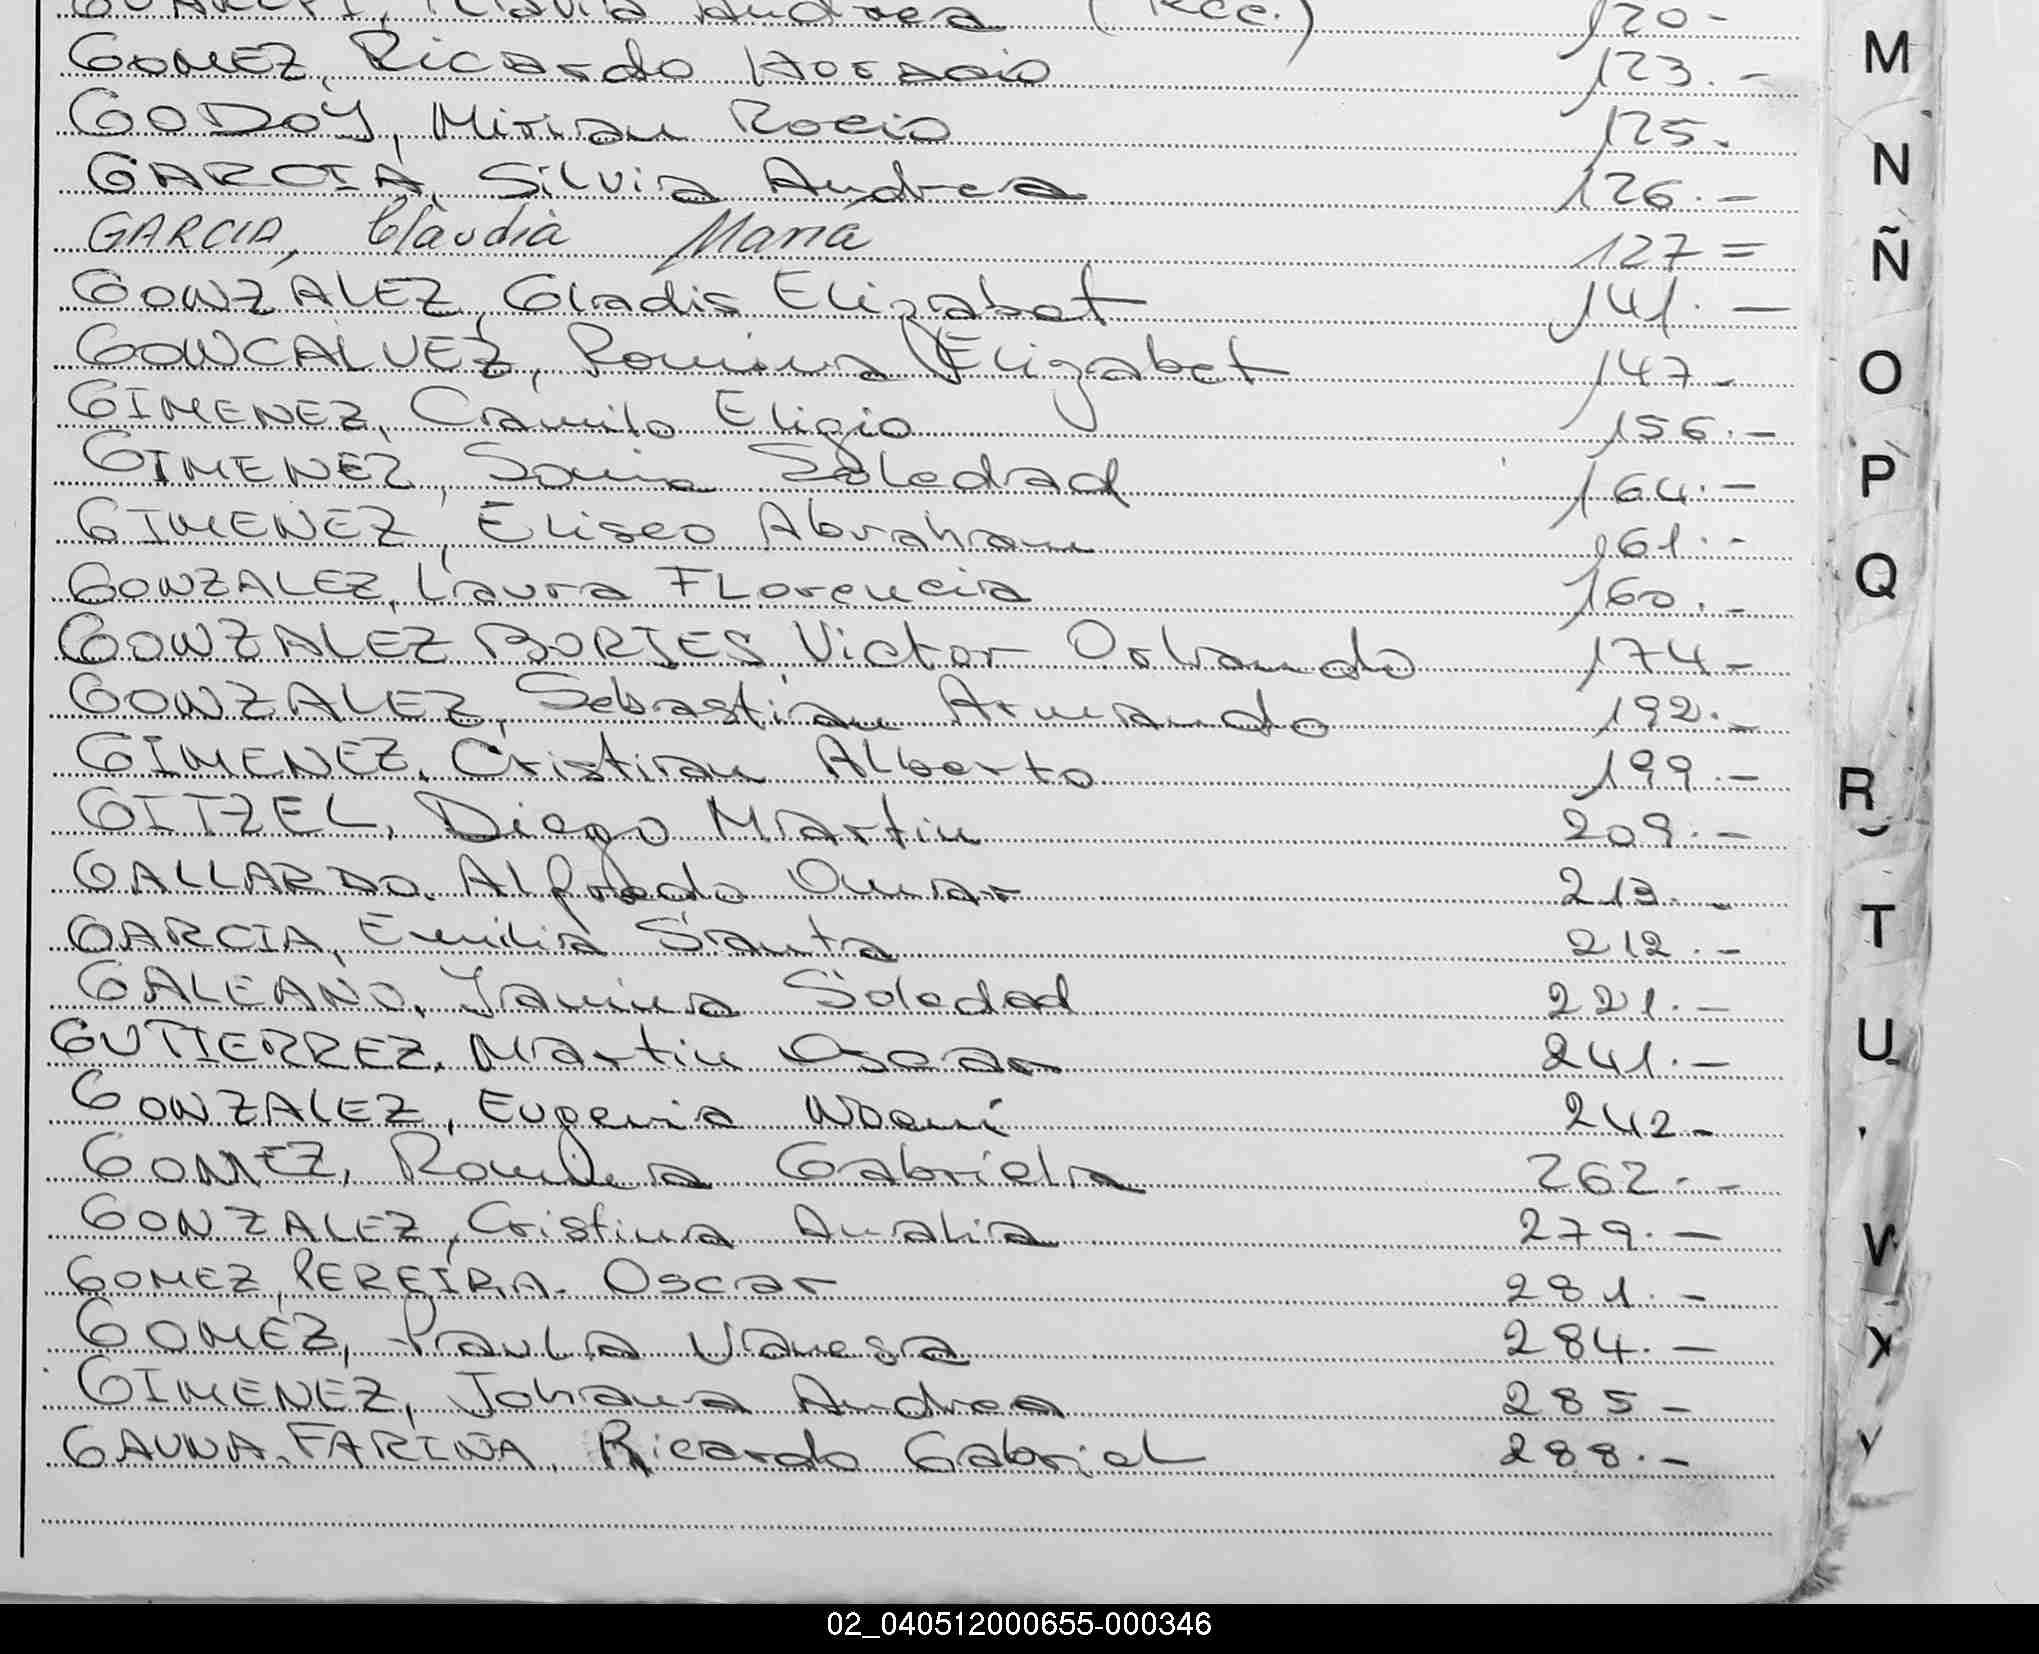 Andrea (Rec.) 120-
GOMEZ, Ricardo Horacio 123.-
GODOY, Mirian Rocio 125.
GARCIA, Silvia Andrea 126.-
GARCIA, Claudia María 127=
GONZALEZ, Gladis Elizabet 141.-
GONCALVEZ, Romina Elizabet 147.-
GIMENEZ, Camilo Eligio 156.-
GIMENEZ, Sonia Soledad 164.-
GIMENEZ, Eliseo Abraham 161.-
GONZALEZ, Laura FLorencia 160.-
GONZALEZ BORJES Victor Orlando 174-
GONZALEZ, Sebastián Armando 192.-
GIMENEZ, Cristian Alberto 199.-
GITZEL, Diego Martin 209.-
GALLARDO. Alfredo Omar 213.-
GARCIA, Emilia Santa 212.-
GALEANO, Yanina Soledad 221.-
GUTIERREZ, Martin Oscar 241.-
GONZALEZ, Eugenia Noemí 242-
GOMEZ, Romina Gabriela 262.-
GONZALEZ, Cristina Analia 279.-
GOMEZ, PEREIRA. Oscar 281.-
GOMEZ, Paula Vanesa 284.-
GIMENEZ, Johana Andrea 285-
GAUNA. FARIÑA, Ricardo Gabriel 288.-
M
N
Ñ
O
P
Q
R
T
U
V
X
Y
02_040512000655-000346